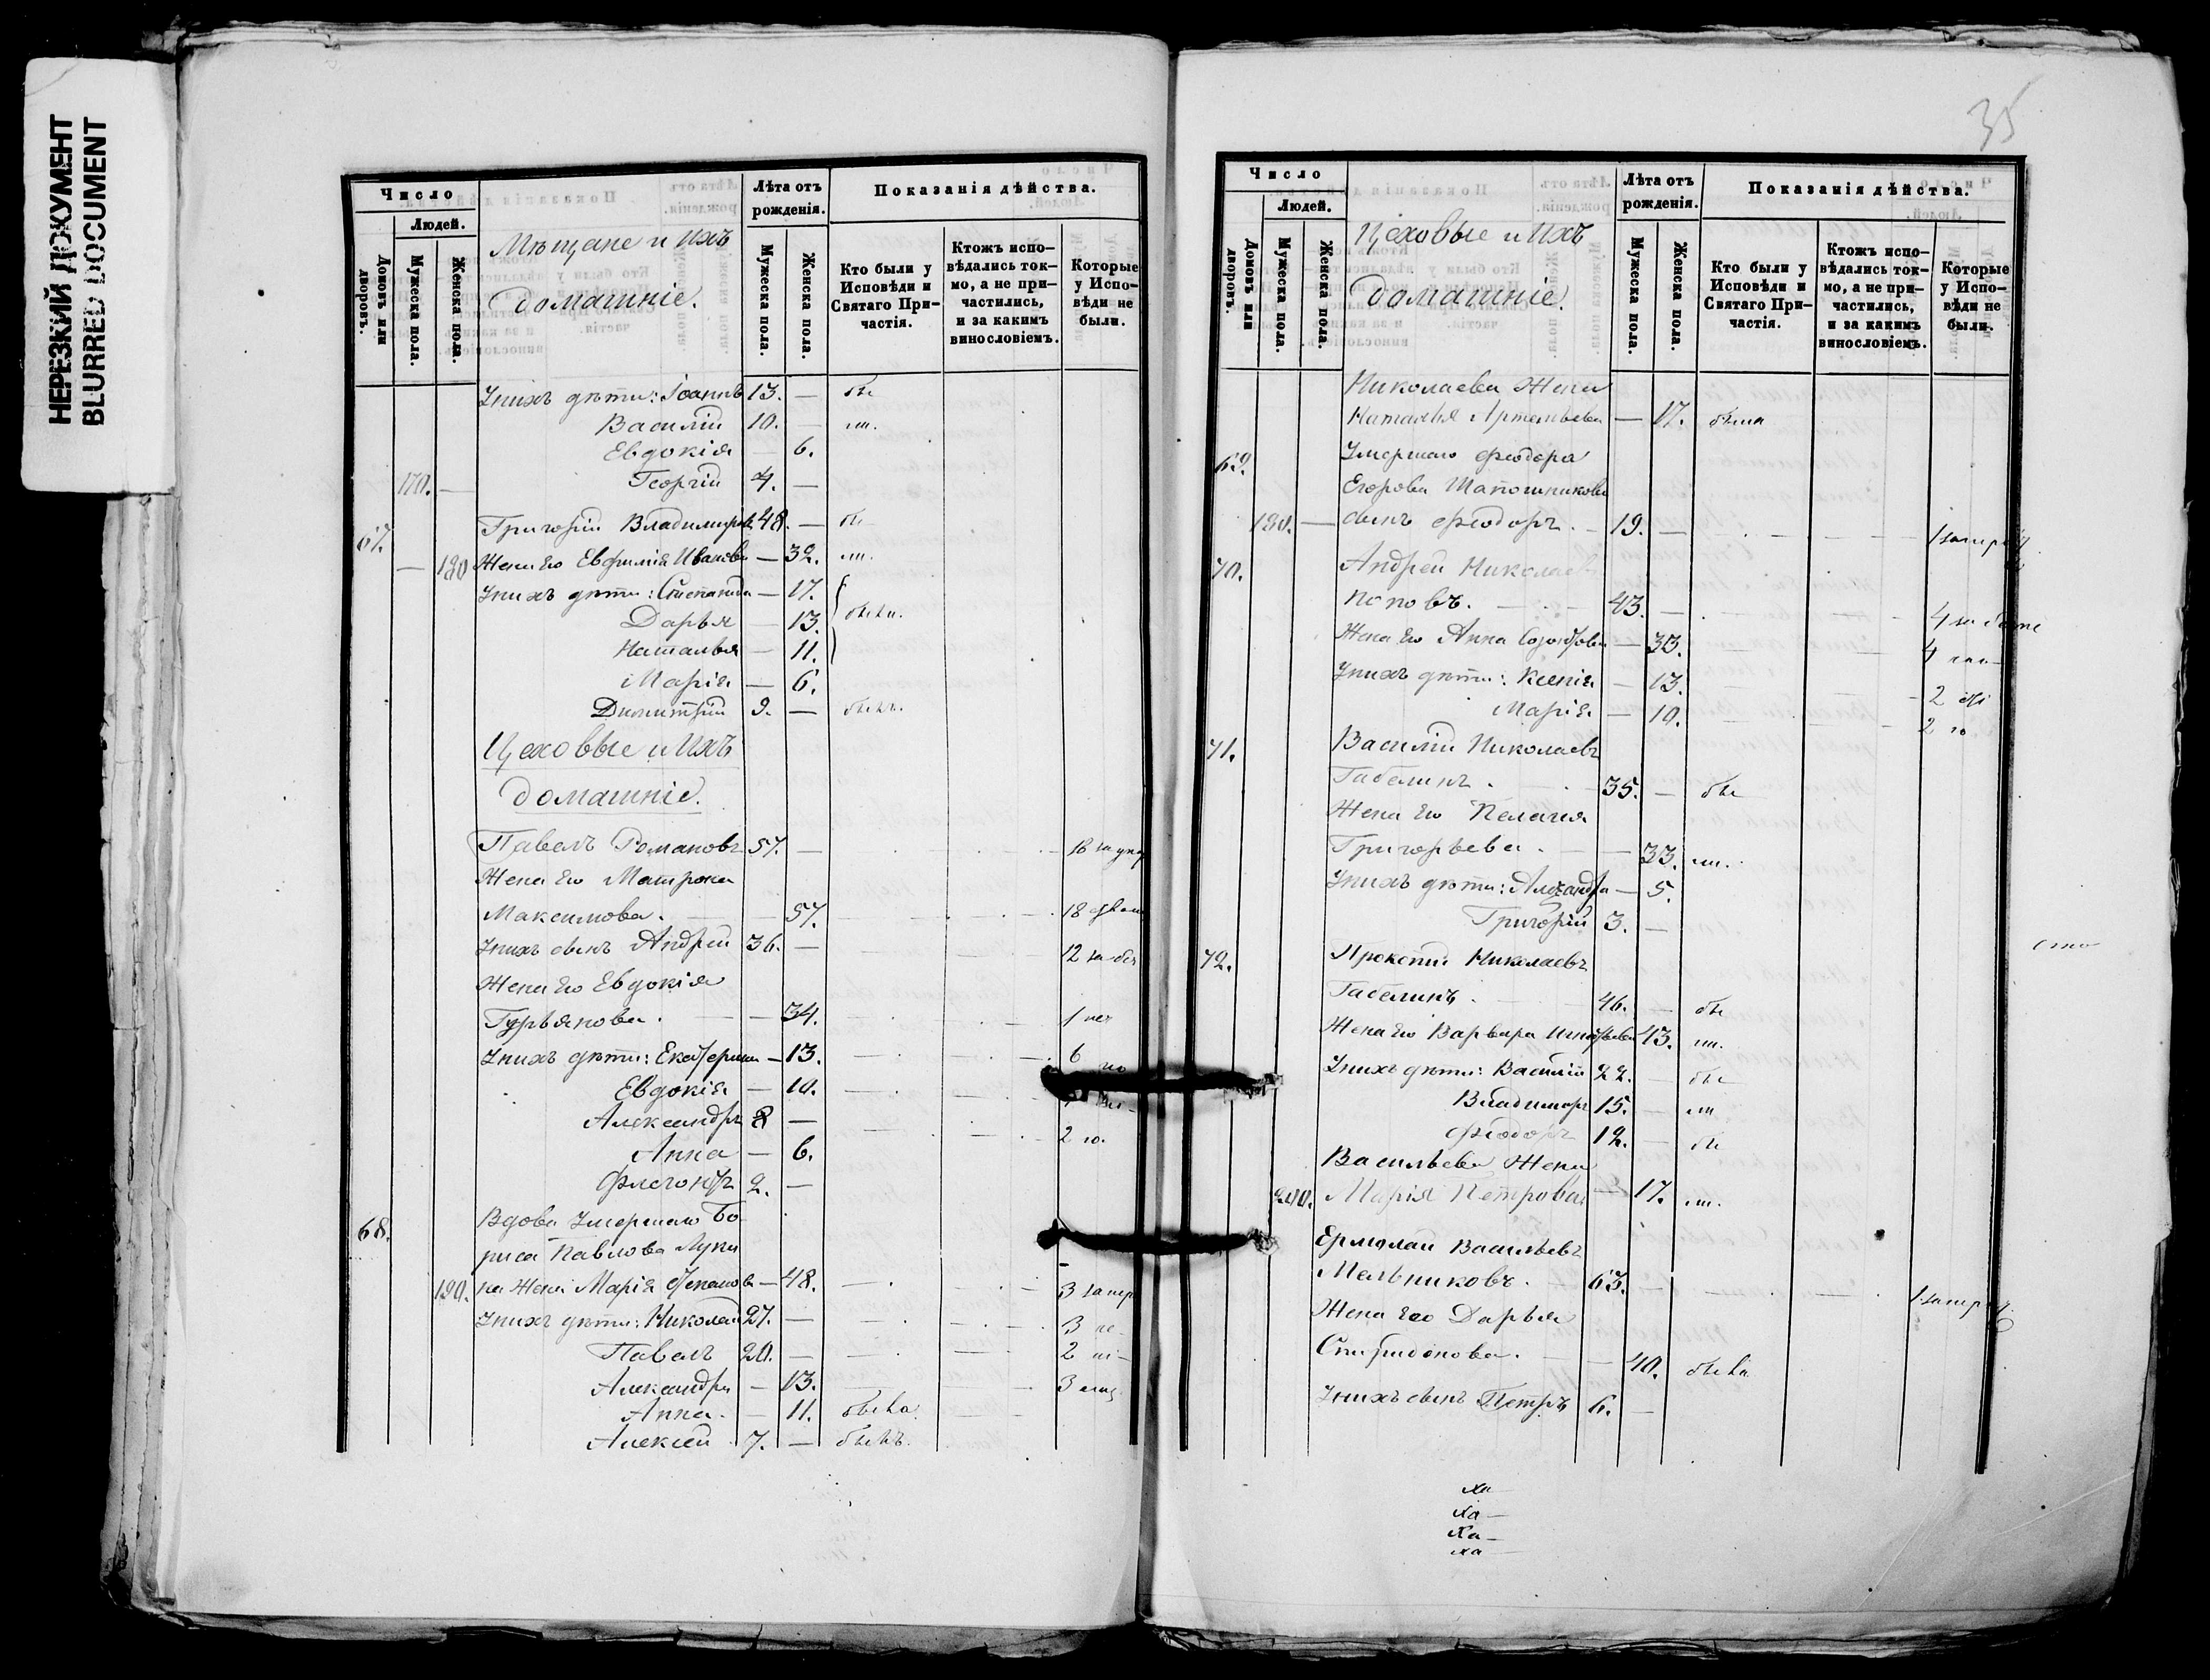 НЕРЕЗКИЙ ДОКУМЕНТ
BLURRED DOCUMENT
Число
Людей.
Домовъ или дворовъ.
Мужеска пола.
Женска пола.
Мѣщане и ихъ
домашніе.
Лѣта отъ рожденія.
Мужеска пола.
Женска пола.
Показанія дѣйства.
Кто были у Исповѣди и Святаго Причастія.
Ктожъ исповѣдались токмо, а не причастились, и за какимъ винословіемъ.
Которые у Исповѣди не были.
У нихъ дѣти: Іоаннъ 13. —
Василій 10. —
Евдокія — 6.
170. — Георгій 4. —
67. Григорій Владиміровъ 48. —
— 180 Жена его Евфимія Иванова — 32.
У нихъ дѣти: Степанида — 17.
Дарья — 13. были.
Наталья — 11.
Марія — 6.
Димитрій 9. — былъ.
Цеховые и ихъ
домашніе.
Павелъ Романовъ 57. — 18
Жена его Матрона
Максимова. — 57. 18
У нихъ сынъ Андрей 36. — 12
Жена его Евдокія
Гурьянова. — 34. 1
У нихъ дѣти: Екатерина — 13. 6
Евдокія — 10.
Александръ 8 — 2
Анна — 6.
Флегонтъ 2. —
68. Вдова Умершаго Бо
риса Павлова Луки
190. на Жена Марія Степанова — 48. — 3
У нихъ дѣти: Николай 27. — 3
Павелъ 20. — 2
Александра — 13. 3
Анна. — 11. была
Алексей 7. — былъ.
35
Число
Людей.
Домовъ или дворовъ.
Мужеска пола.
Женска пола.
Цеховые и ихъ
домашніе.
Лѣта отъ рожденія.
Мужеска пола.
Женска пола.
Показанія дѣйства.
Кто были у Исповѣди и Святаго Причастія.
Ктожъ исповѣдались токмо, а не причастились, и за какимъ винословіемъ.
Которые у Исповѣди не были.
Николаева Жена
Наталья Артемьева — 17. была
69. Умершаго Феодора
Егорова Шапошникова
180. — сынъ Феодоръ. — 19. — 1
70. Андрей Николаев
Поповъ. 43. — 4
Жена его Анна — 33. 4
У нихъ дѣти: Ксенія — 13. 2
Марія — 10. 2
71. Василій Николаевъ
Габелинъ. 35. —
Жена его Пелагия
Григорьева. — 33.
У нихъ дѣти: Александра — 5.
Григорій 3. —
72. Прокопій Николаевъ
Габелинъ. 46. —
Жена его Варвара Игнатьева 43.
У нихъ дѣти: Василій 22. —
Владиміръ 15. —
Феодоръ 12. —
Васильева Жена
200. Марія Петрова — 17.
Ермолай Васильевъ
Мельниковъ. 63. — 1
Жена его Дарья
Спиридонова. — 40. была
У нихъ сынъ Петръ 6. —
ха —
ха —
ха —
ха —